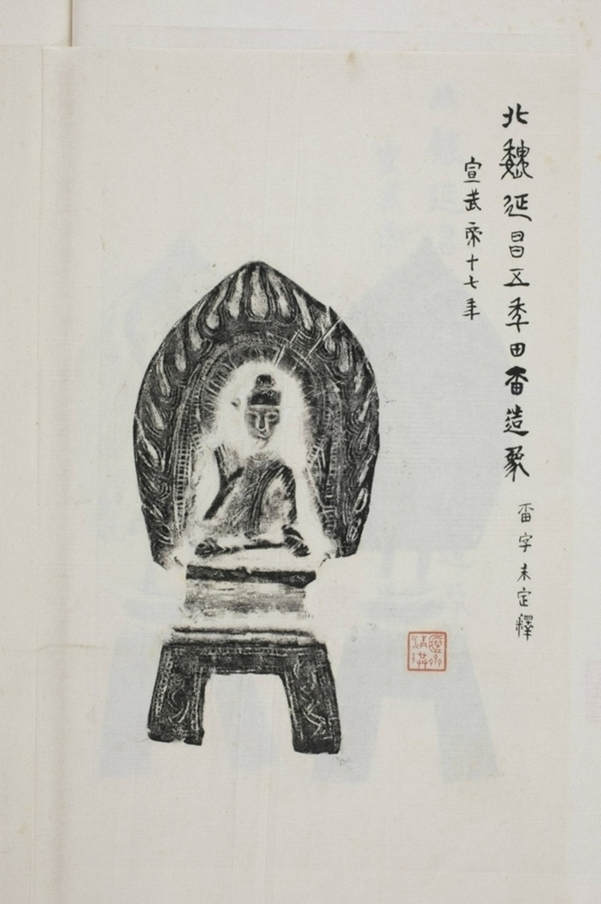 北魏延昌五年田畨造象
畨字未定釋
宣武帝十七年